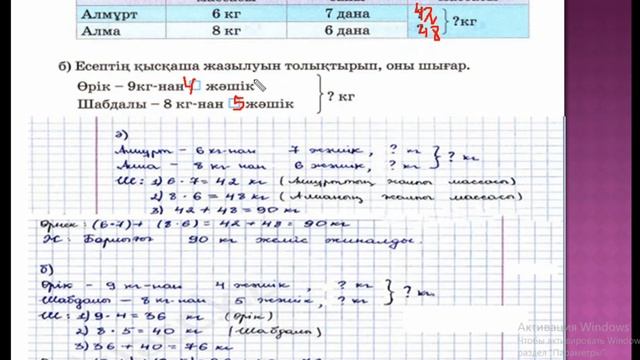 Алмұрт 6 кг 7 дана 42 ?кг
Алма 8 кг 6 дана 48
б) Есептің қысқаша жазылуын толықтырып, оны шығар.
Өрік – 9кг-нан 4 жәшік
Шабдалы – 8 кг-нан 5 жәшік ? кг
а)
Алмұрт – 6 кг-нан 7 жәшік, ? кг ? кг
Алма – 8 кг нан 6 жәшік, ? кг
Ш: 1) 6 · 7 = 42 кг (Алмұрттың жалпы массасы)
2) 8 · 6 = 48 кг (Алманың жалпы массасы)
3) 42 + 48 = 90 кг
Өрнек: (6·7) + (8·6) = 42 + 48 = 90 кг
Ж: Барлығы 90 кг жеміс жиналды.
б)
Өрік – 9 кг-нан 4 жәшік, ? кг ? кг
Шабдалы – 8 кг-нан 5 жәшік, ? кг
Ш: 1) 9 · 4 = 36 кг (Өрік)
2) 8 · 5 = 40 кг (Шабдалы)
3) 36 + 40 = 76 кг
Активация Windows
Чтобы активировать Windows
раздел "Параметры"